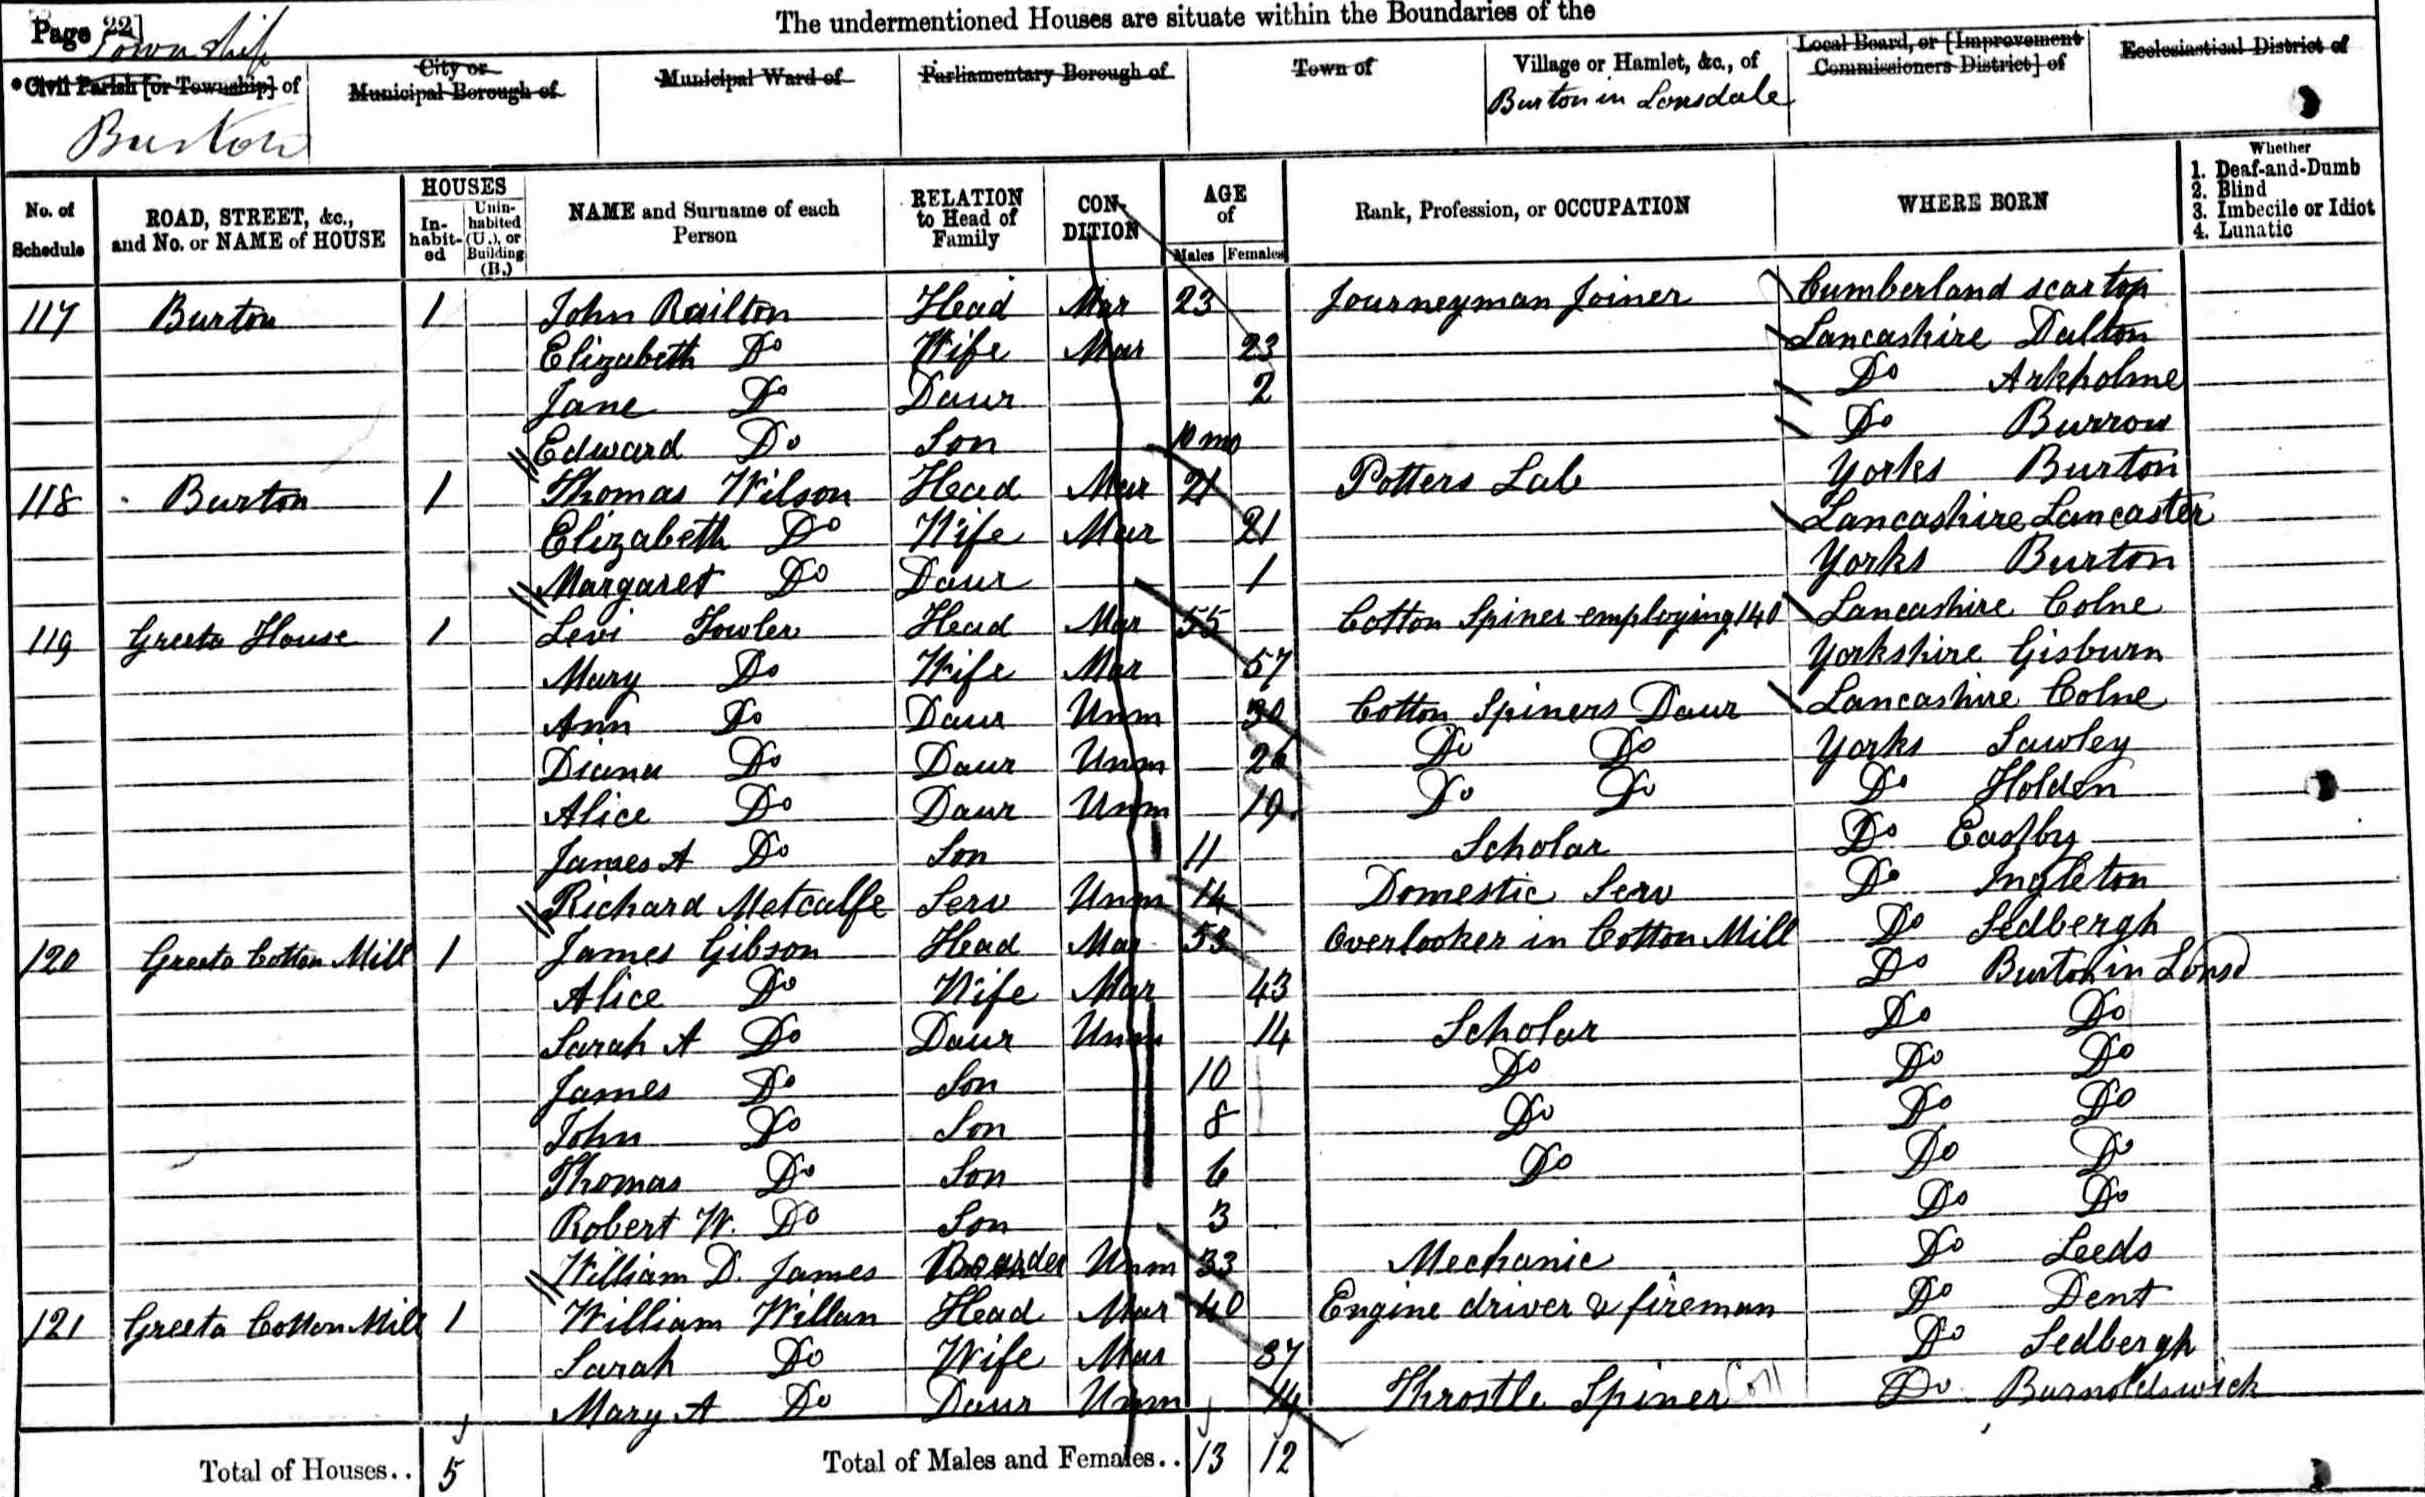 Page 22]
The undermentioned Houses are situate within the Boundaries of the
Township
Civil Parish [or Township] of
City or Municipal Borough of
Municipal Ward of
Parliamentary Borough of
Town of
Village or Hamlet, &c., of
Local Board, or [Improvement Commissioners District] of
Ecclesiastical District of
Burton
Burton in Lonsdale
No. of Schedule
ROAD, STREET, &c., and No. or NAME of HOUSE
HOUSES
In-habit-ed
Unin-habited (U.), or Building (B.)
NAME and Surname of each Person
RELATION to Head of Family
CON-DITION
AGE of
Males
Females
Rank, Profession, or OCCUPATION
WHERE BORN
Whether
1. Deaf-and-Dumb
2. Blind
3. Imbecile or Idiot
4. Lunatic
117 Burton 1 John Railton Head Mar 23 Journeyman Joiner Cumberland scar top
Elizabeth Do Wife Mar 23 Lancashire Dalton
Jane Do Daur 2 Do Arkholme
Edward Do Son 10 mo Do Burrow
118 Burton 1 Thomas Wilson Head Mar 21 Potters Lab Yorks Burton
Elizabeth Do Wife Mar 21 Lancashire Lancaster
Margaret Do Daur 1 Yorks Burton
119 Greeta House 1 Levi Fowler Head Mar 55 Cotton Spiner employing 140 Lancashire Colne
Mary Do Wife Mar 57 Yorkshire Gisburn
Ann Do Daur Unm 30 Cotton Spiners Daur Lancashire Colne
Diana Do Daur Unm 26 Do Do Yorks Sawley
Alice Do Daur Unm 19 Do Do Do Holden
James A Do Son 11 Scholar Do Eastby
Richard Metcalfe Serv Unm 14 Domestic Serv Do Ingleton
120 Greeta Cotton Mill 1 James Gibson Head Mar 53 Overlooker in Cotton Mill Do Sedbergh
Alice Do Wife Mar 43 Do Burton in Lonsd
Sarah A Do Daur Unm 14 Scholar Do Do
James Do Son 10 Do Do Do
John Do Son 8 Do Do Do
Thomas Do Son 6 Do Do Do
Robert W. Do Son 3 Do Do
William D. James Boarder Unm 33 Mechanic Do Leeds
121 Greeta Cotton Mill 1 William Willan Head Mar 40 Engine driver & fireman Do Dent
Sarah Do Wife Mar 37 Do Sedbergh
Mary A Do Daur Unm 14 Throstle Spiner Do Burnoldswick
Total of Houses.. 5
Total of Males and Females.. 13 12